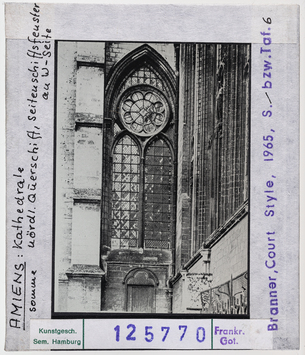 AMIENS: Kathedrale
nördl. Querschiff, Seitenschiffsfenster
an W-Seite
somme
Branner, Court Style, 1965, S. – bzw. Taf. 6
Kunstgesch.
Sem. Hamburg
125770
Frankr.
Got.